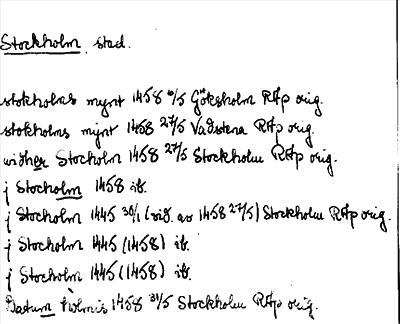 Stockholm, stad.
stokholms mynt 1458 10/5 Göksholm RAp orig.
stokholms mÿnt 1458 27/5 Vadstena RAp orig.
widher Stocholm 1458 27/5 Stockholm RAp orig.
j Stocholm 1458 ib.
j Stocholm 1445 30/1 (vid. av 1458 27/5) Stockholm RAp orig.
j Stocholm 1445 (1458) ib.
j Stocholm 1445 (1458) ib.
Datum 1458 31/5 Stockholm RAp orig.